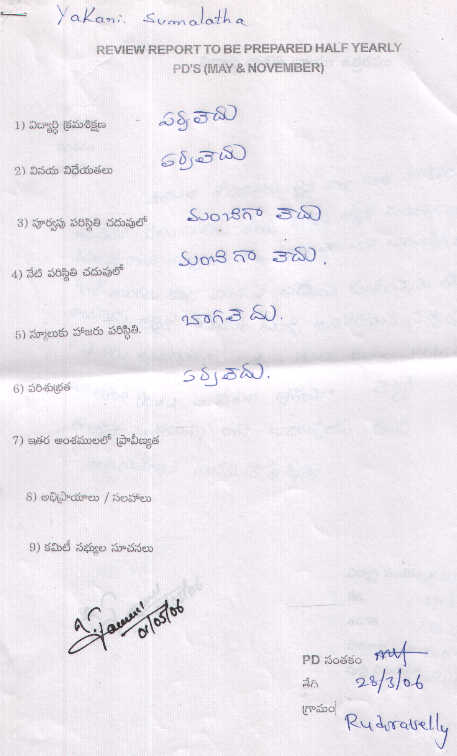 Yakani Sumalatha
REVIEW REPORT TO BE PREPARED HALF YEARLY
PD'S (MAY & NOVEMBER)
1) విద్యార్థి క్రమశిక్షణ పర్వలేదు
2) వినయ విధేయతలు పర్వలేదు
3) పూర్వపు పరిస్థితి చదువులో మంచిగా లేదు
4) నేటి పరిస్థితి చదువులో మంచిగా లేదు.
5) స్కూలుకు హాజరు పరిస్థితి. బాగలేదు.
6) పరిశుభ్రత పర్వలేదు.
7) ఇతర అంశములలో ప్రావీణ్యత
8) అభిప్రాయాలు / సలహాలు
9) కమిటీ సభ్యుల సూచనలు
01/05/06
PD సంతకం
తేది 28/3/06
గ్రామం Rudravelly